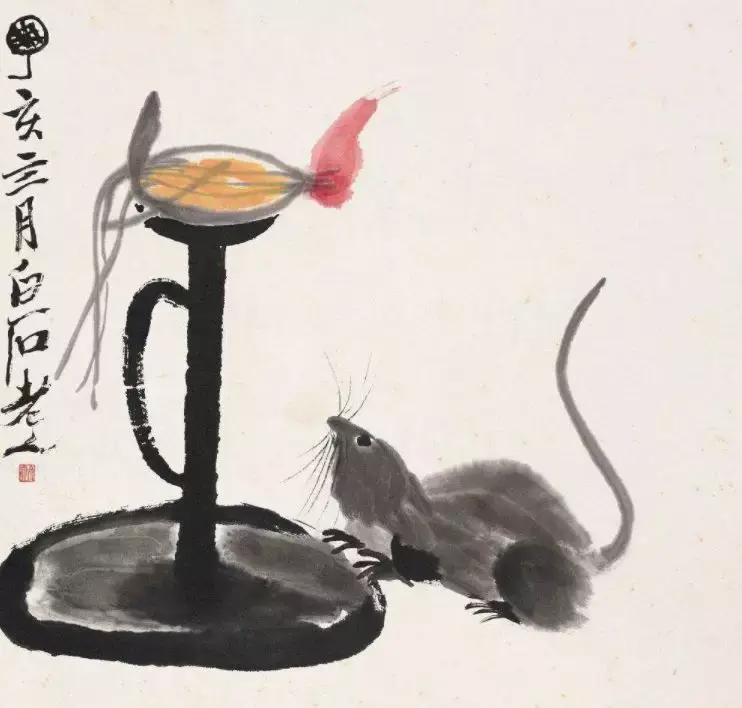 丁亥三月白石老人